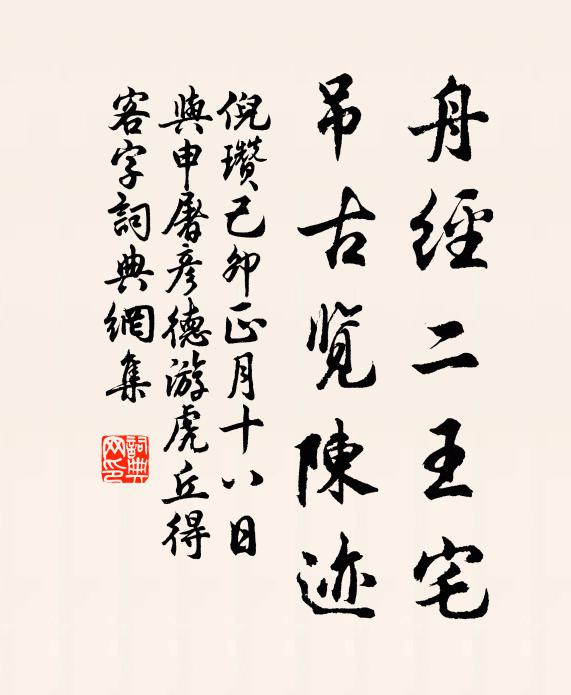 舟經二王宅
吊古覽陳迹
倪瓚己卯正月十八日
與申屠彥德游虎丘得
客字詞典網集
詞典
网印